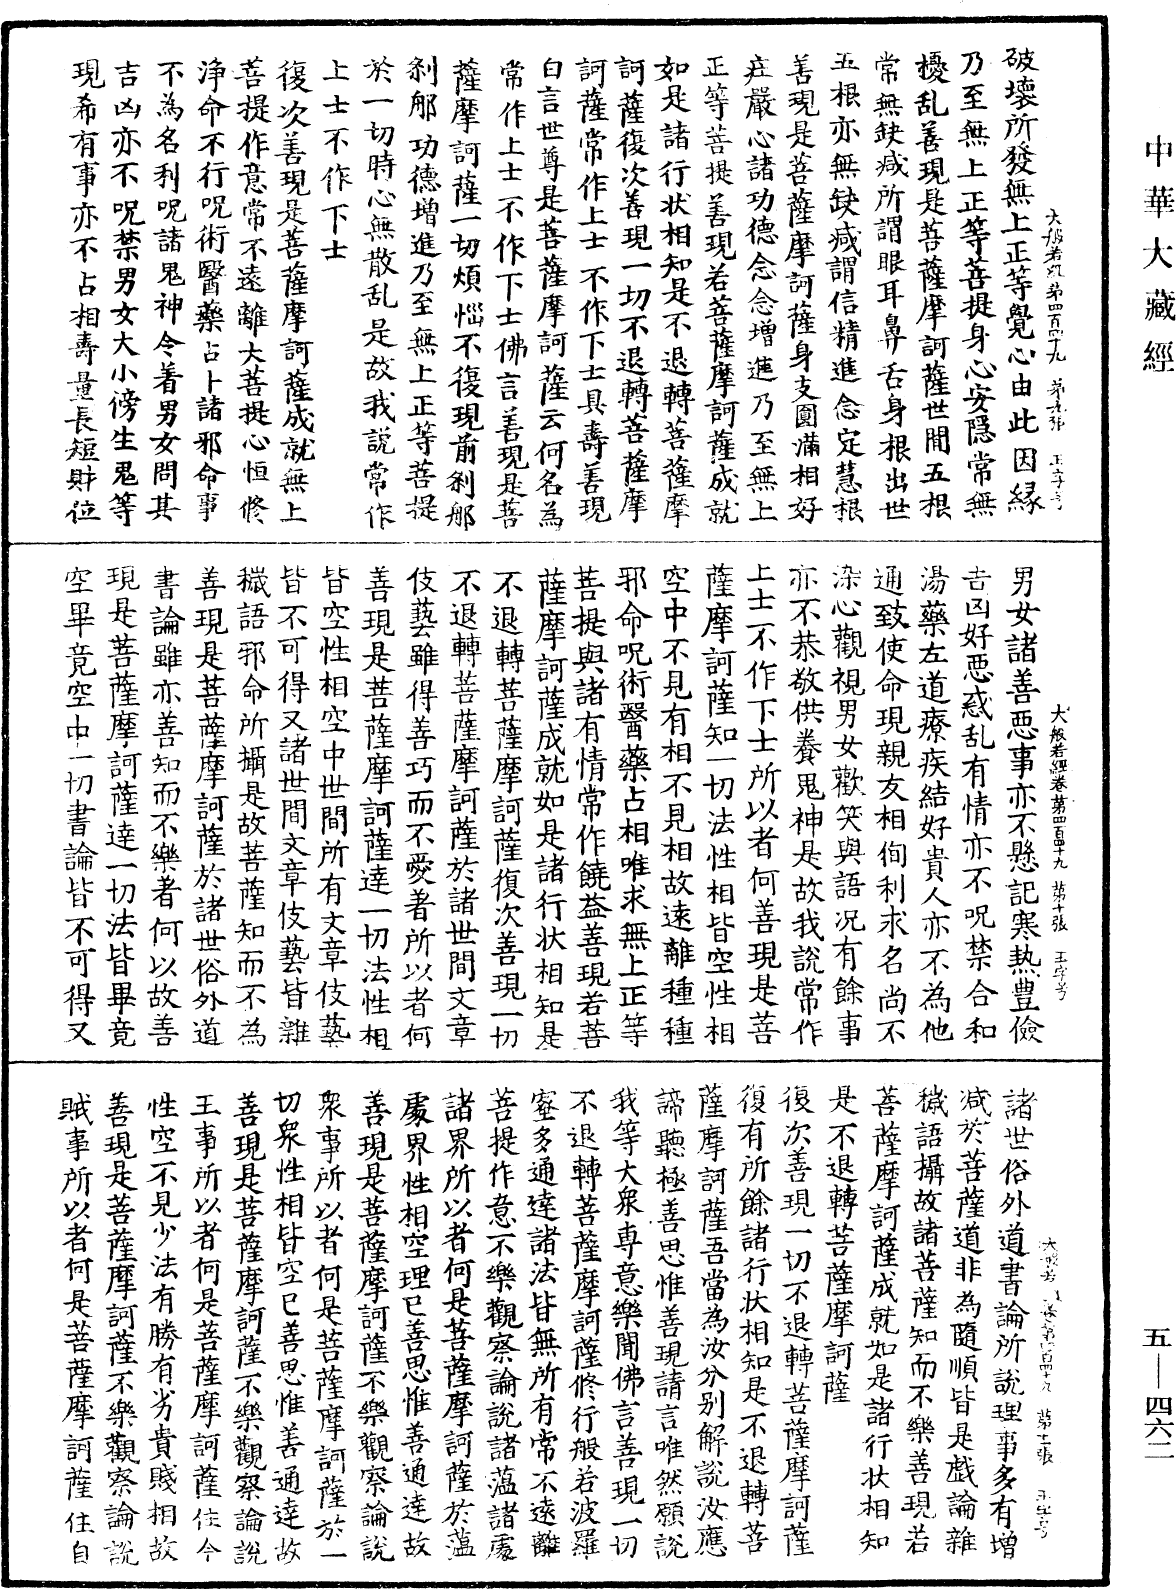 中華大藏經
五—四六二
破壞所發無上正等覺心由此因緣
大般若經第四百四十九 第九張 王字号
乃至無上正等菩提身心安隱常無
擾乱善現是菩薩摩訶薩世間五根
常無缺減所謂眼耳鼻舌身根出世
五根亦無缺減謂信精進念定慧根
善現是菩薩摩訶薩身支圓滿相好
莊嚴心諸功德念念增進乃至無上
正等菩提善現若菩薩摩訶薩成就
如是諸行狀相知是不退轉菩薩摩
訶薩復次善現一切不退轉菩薩摩
訶薩常作上士不作下士具壽善現
白言世尊是菩薩摩訶薩云何名為
常作上士不作下士佛言善現是菩
薩摩訶薩一切煩惱不復現前剎那
剎那功德增進乃至無上正等菩提
於一切時心無散乱是故我說常作
上士不作下士
復次善現是菩薩摩訶薩成就無上
菩提作意常不遠離大菩提心恒修
淨命不行呪術醫藥占卜諸邪命事
不為名利呪諸鬼神令著男女問其
吉凶亦不呪禁男女大小傍生鬼等
現希有事亦不占相壽量長短財位
男女諸善惡事亦不懸記寒熱豊儉
大般若經卷第四百四十九 第十張 王字号
吉凶好惡惑乱有情亦不呪禁合和
湯藥左道療疾結好貴人亦不為他
通致使命現親友相徇利求名尚不
染心觀視男女歡笑與語況有餘事
亦不恭敬供養鬼神是故我說常作
上士不作下士所以者何善現是菩
薩摩訶薩知一切法性相皆空性相
空中不見有相不見相故遠離種種
邪命呪術醫藥占相唯求無上正等
菩提與諸有情常作饒益善現若菩
薩摩訶薩成就如是諸行狀相知是
不退轉菩薩摩訶薩復次善現一切
不退轉菩薩摩訶薩於諸世間文章
伎藝雖得善巧而不愛著所以者何
善現是菩薩摩訶薩達一切法性相
皆空性相空中世間所有文章伎藝
皆不可得又諸世間文章伎藝皆雜
穢語邪命所攝是故菩薩知而不為
善現是菩薩摩訶薩於諸世俗外道
書論雖亦善知而不樂著何以故善
現是菩薩摩訶薩達一切法皆畢竟
空畢竟空中一切書論皆不可得又
諸世俗外道書論所說理事多有增
第十一張 王字号
減於菩薩道非為隨順皆是戲論雜
穢語攝故諸菩薩知而不樂善現若
菩薩摩訶薩成就如是諸行狀相知
是不退轉菩薩摩訶薩
復次善現一切不退轉菩薩摩訶薩
復有所餘諸行狀相知是不退轉菩
薩摩訶薩吾當為汝分別解說汝應
諦聽極善思惟善現請言唯然願說
我等大衆專意樂聞佛言善現一切
不退轉菩薩摩訶薩修行般若波羅
蜜多通達諸法皆無所有常不遠離
菩提作意不樂觀察論說諸蘊諸處
諸界所以者何是菩薩摩訶薩於蘊
處界性相空理已善思惟善通達故
善現是菩薩摩訶薩不樂觀察論說
衆事所以者何是菩薩摩訶薩於一
切衆性相皆空已善思惟善通達故
善現是菩薩摩訶薩不樂觀察論說
王事所以者何是菩薩摩訶薩住本
性空不見少法有勝有劣貴賤相故
善現是菩薩摩訶薩不樂觀察論說
賊事所以者何是菩薩摩訶薩住自